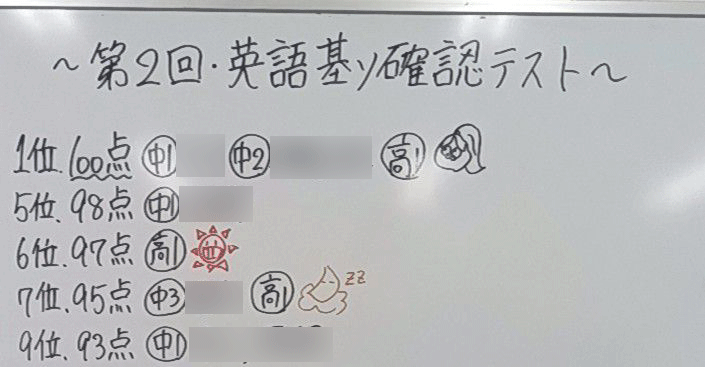 ～第2回・英語基ソ確認テスト～
1位.100点 中1 中2 高1
5位.98点 中1
6位.97点 高1
7位.95点 中3 高1 zz
9位.93点 中1